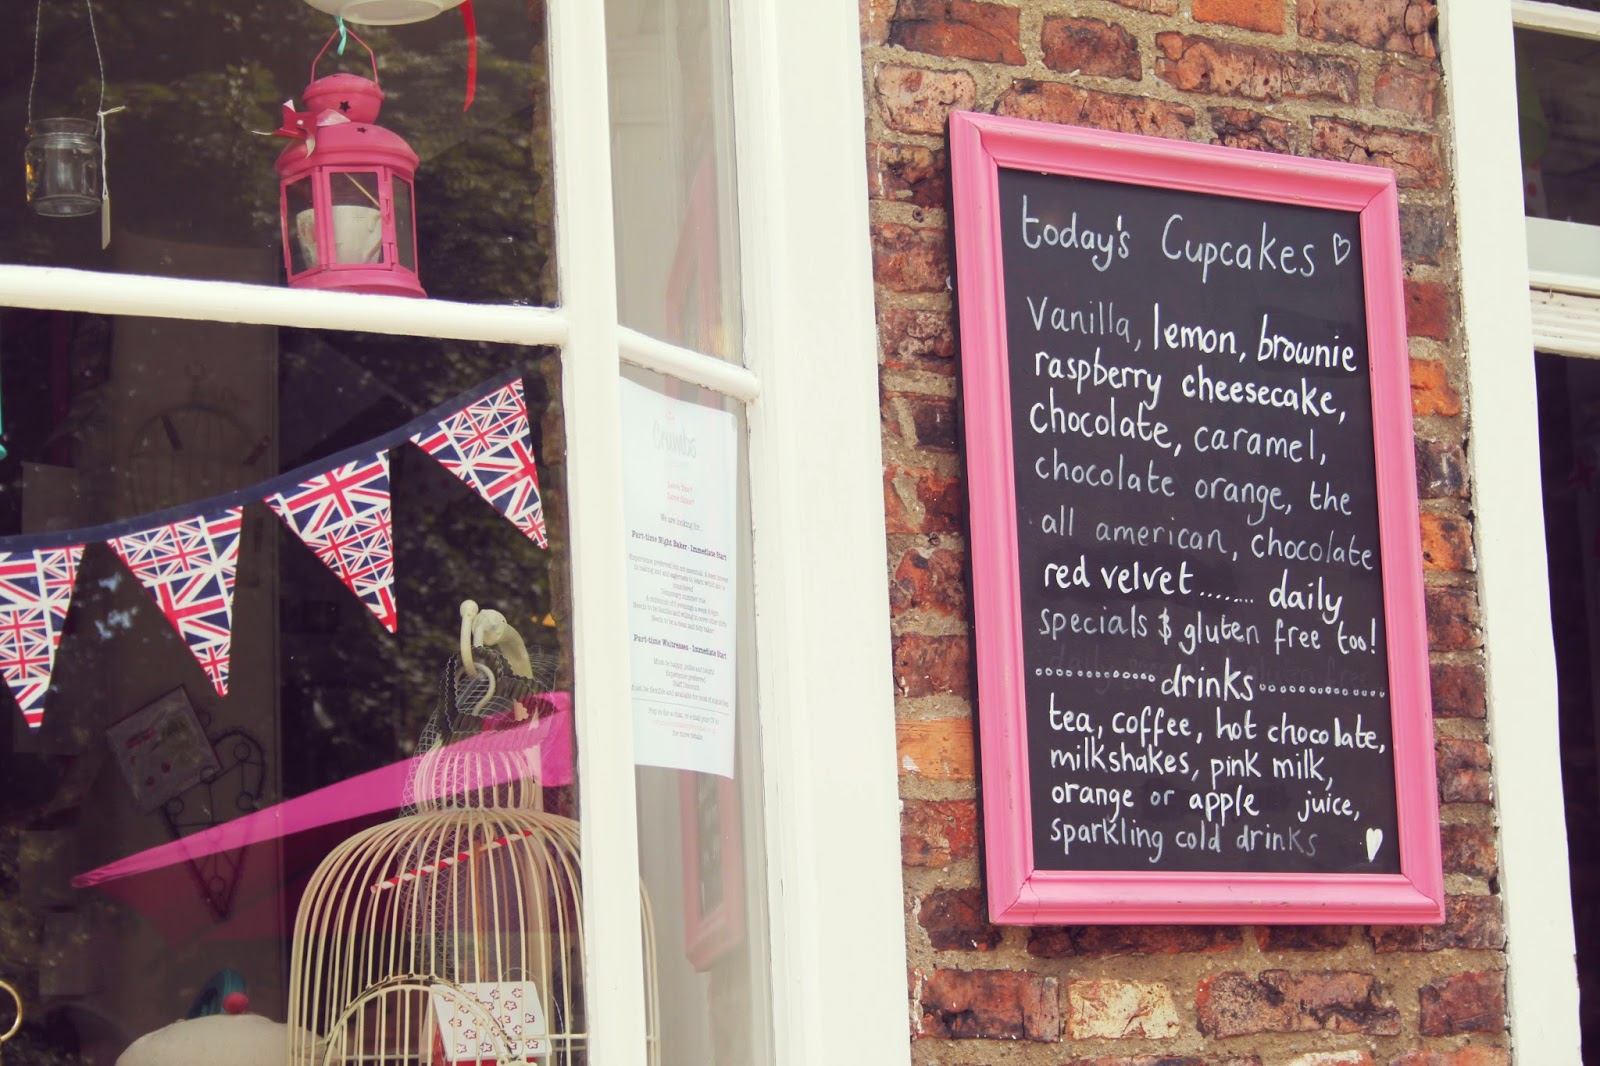 today's Cupcakes
Vanilla, lemon, brownie
raspberry cheesecake,
chocolate, caramel,
chocolate orange, the
all american, chocolate
red velvet........ daily
specials & gluten free too!
drinks
tea, coffee, hot chocolate,
milkshakes, pink milk,
orange or apple juice,
sparkling cold drinks
Crumbs
We are looking for...
Part-time Night Baker - Immediate Start
Part-time Waitresses - Immediate Start
Experience preferred
for more details